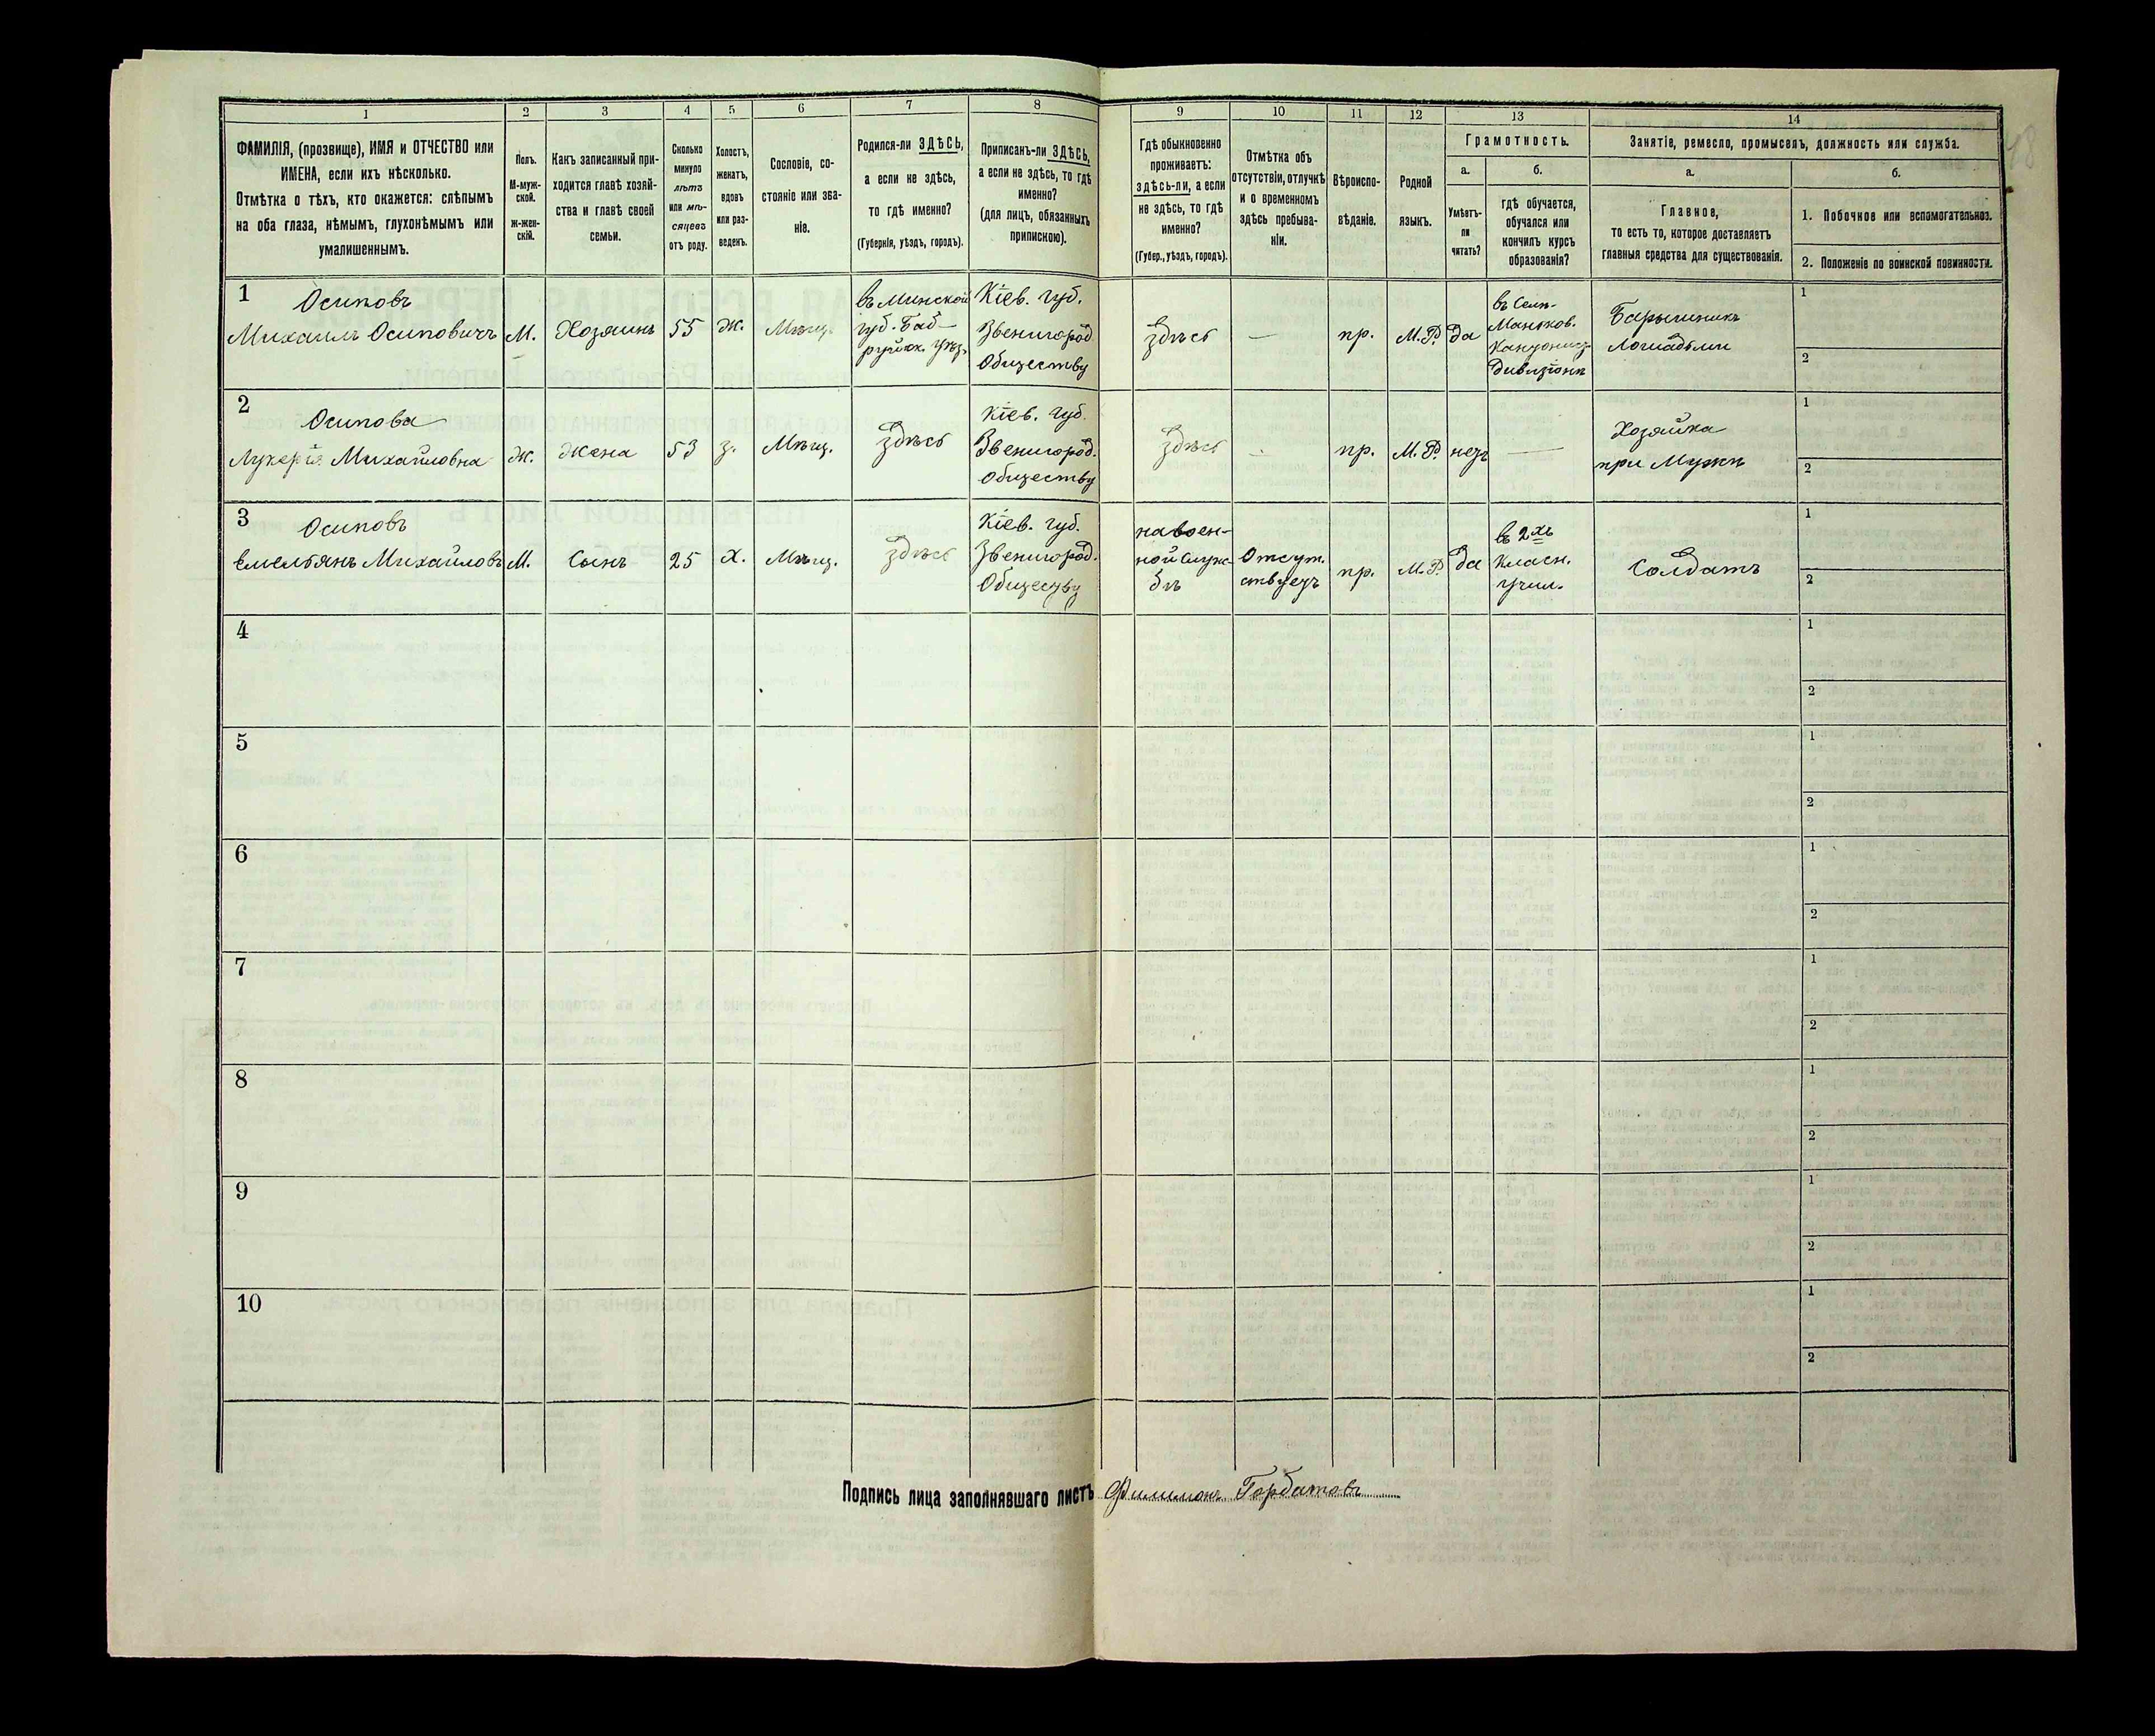 1
2
3
4
5
6
7
8
9
10
11
12
13
14
ФАМИЛІЯ, (прозвище), ИМЯ и ОТЧЕСТВО или
ИМЕНА, если ихъ нѣсколько.
Отмѣтка о тѣхъ, кто окажется: слѣпымъ
на оба глаза, нѣмымъ, глухонѣмымъ или
умалишеннымъ.
Полъ.
М-муж-
ской.
ж-жен-
скій.
Какъ записанный при-
ходится главѣ хозяй-
ства и главѣ своей
семьи.
Сколько
минуло
лѣтъ
или мѣ-
сяцевъ
отъ роду.
Холостъ,
женатъ,
вдовъ
или раз-
веденъ.
Сословіе, со-
стояніе или зва-
ніе.
Родился-ли ЗДѢСЬ,
а если не здѣсь,
то гдѣ именно?
(Губернія, уѣздъ, городъ).
Приписанъ-ли ЗДѢСЬ,
а если не здѣсь, то гдѣ
именно?
(для лицъ, обязанныхъ
припискою).
Гдѣ обыкновенно
проживаетъ:
здѣсь-ли, а если
не здѣсь, то гдѣ
именно?
(Губер., уѣздъ, городъ).
Отмѣтка объ
отсутствіи, отлучкѣ
и о временномъ
здѣсь пребыва-
ніи.
Вѣроиспо-
вѣданіе.
Родной
языкъ.
Грамотность.
а.
Умѣетъ-
ли
читать?
б.
гдѣ обучается,
обучался или
кончилъ курсъ
образованія?
Занятіе, ремесло, промыселъ, должность или служба.
а.
Главное,
то есть то, которое доставляетъ
главныя средства для существованія.
б.
1. Побочное или вспомогательное.
2. Положеніе по воинской повинности.
1
Осиповъ
Михаилъ Осиповичъ
М.
Хозяинъ
55
Ж.
Мѣщ.
въ Минской
губ. Боб-
руйск. уѣз.
Кіев. губ.
Звенигород.
Обществу
здѣсь
—
пр.
М.Р.
да
Барышникъ
Лошадьми
1
2
2
Осипова
Лукерія Михайловна
Ж.
Жена
53
з.
Мѣщ.
здѣсь
Кіев. губ.
Звенигород.
Обществу
здѣсь
—
пр.
М.Р.
нетъ
—
Хозяйка
при Мужѣ
1
2
3
Осиповъ
Емельянъ Михайловъ
М.
Сынъ
25
Х.
Мѣщ.
здѣсь
Кіев. губ.
Звенигород.
Обществу
на воен-
ной служ-
бѣ
Отсут.
ствуетъ
пр.
М.Р.
да
въ 2хъ
класн.
учил.
Солдатъ
1
2
4
1
2
5
1
2
6
1
2
7
1
2
8
1
2
9
1
2
10
1
2
Подпись лица заполнявшаго листъ Филимонъ Горбатовъ